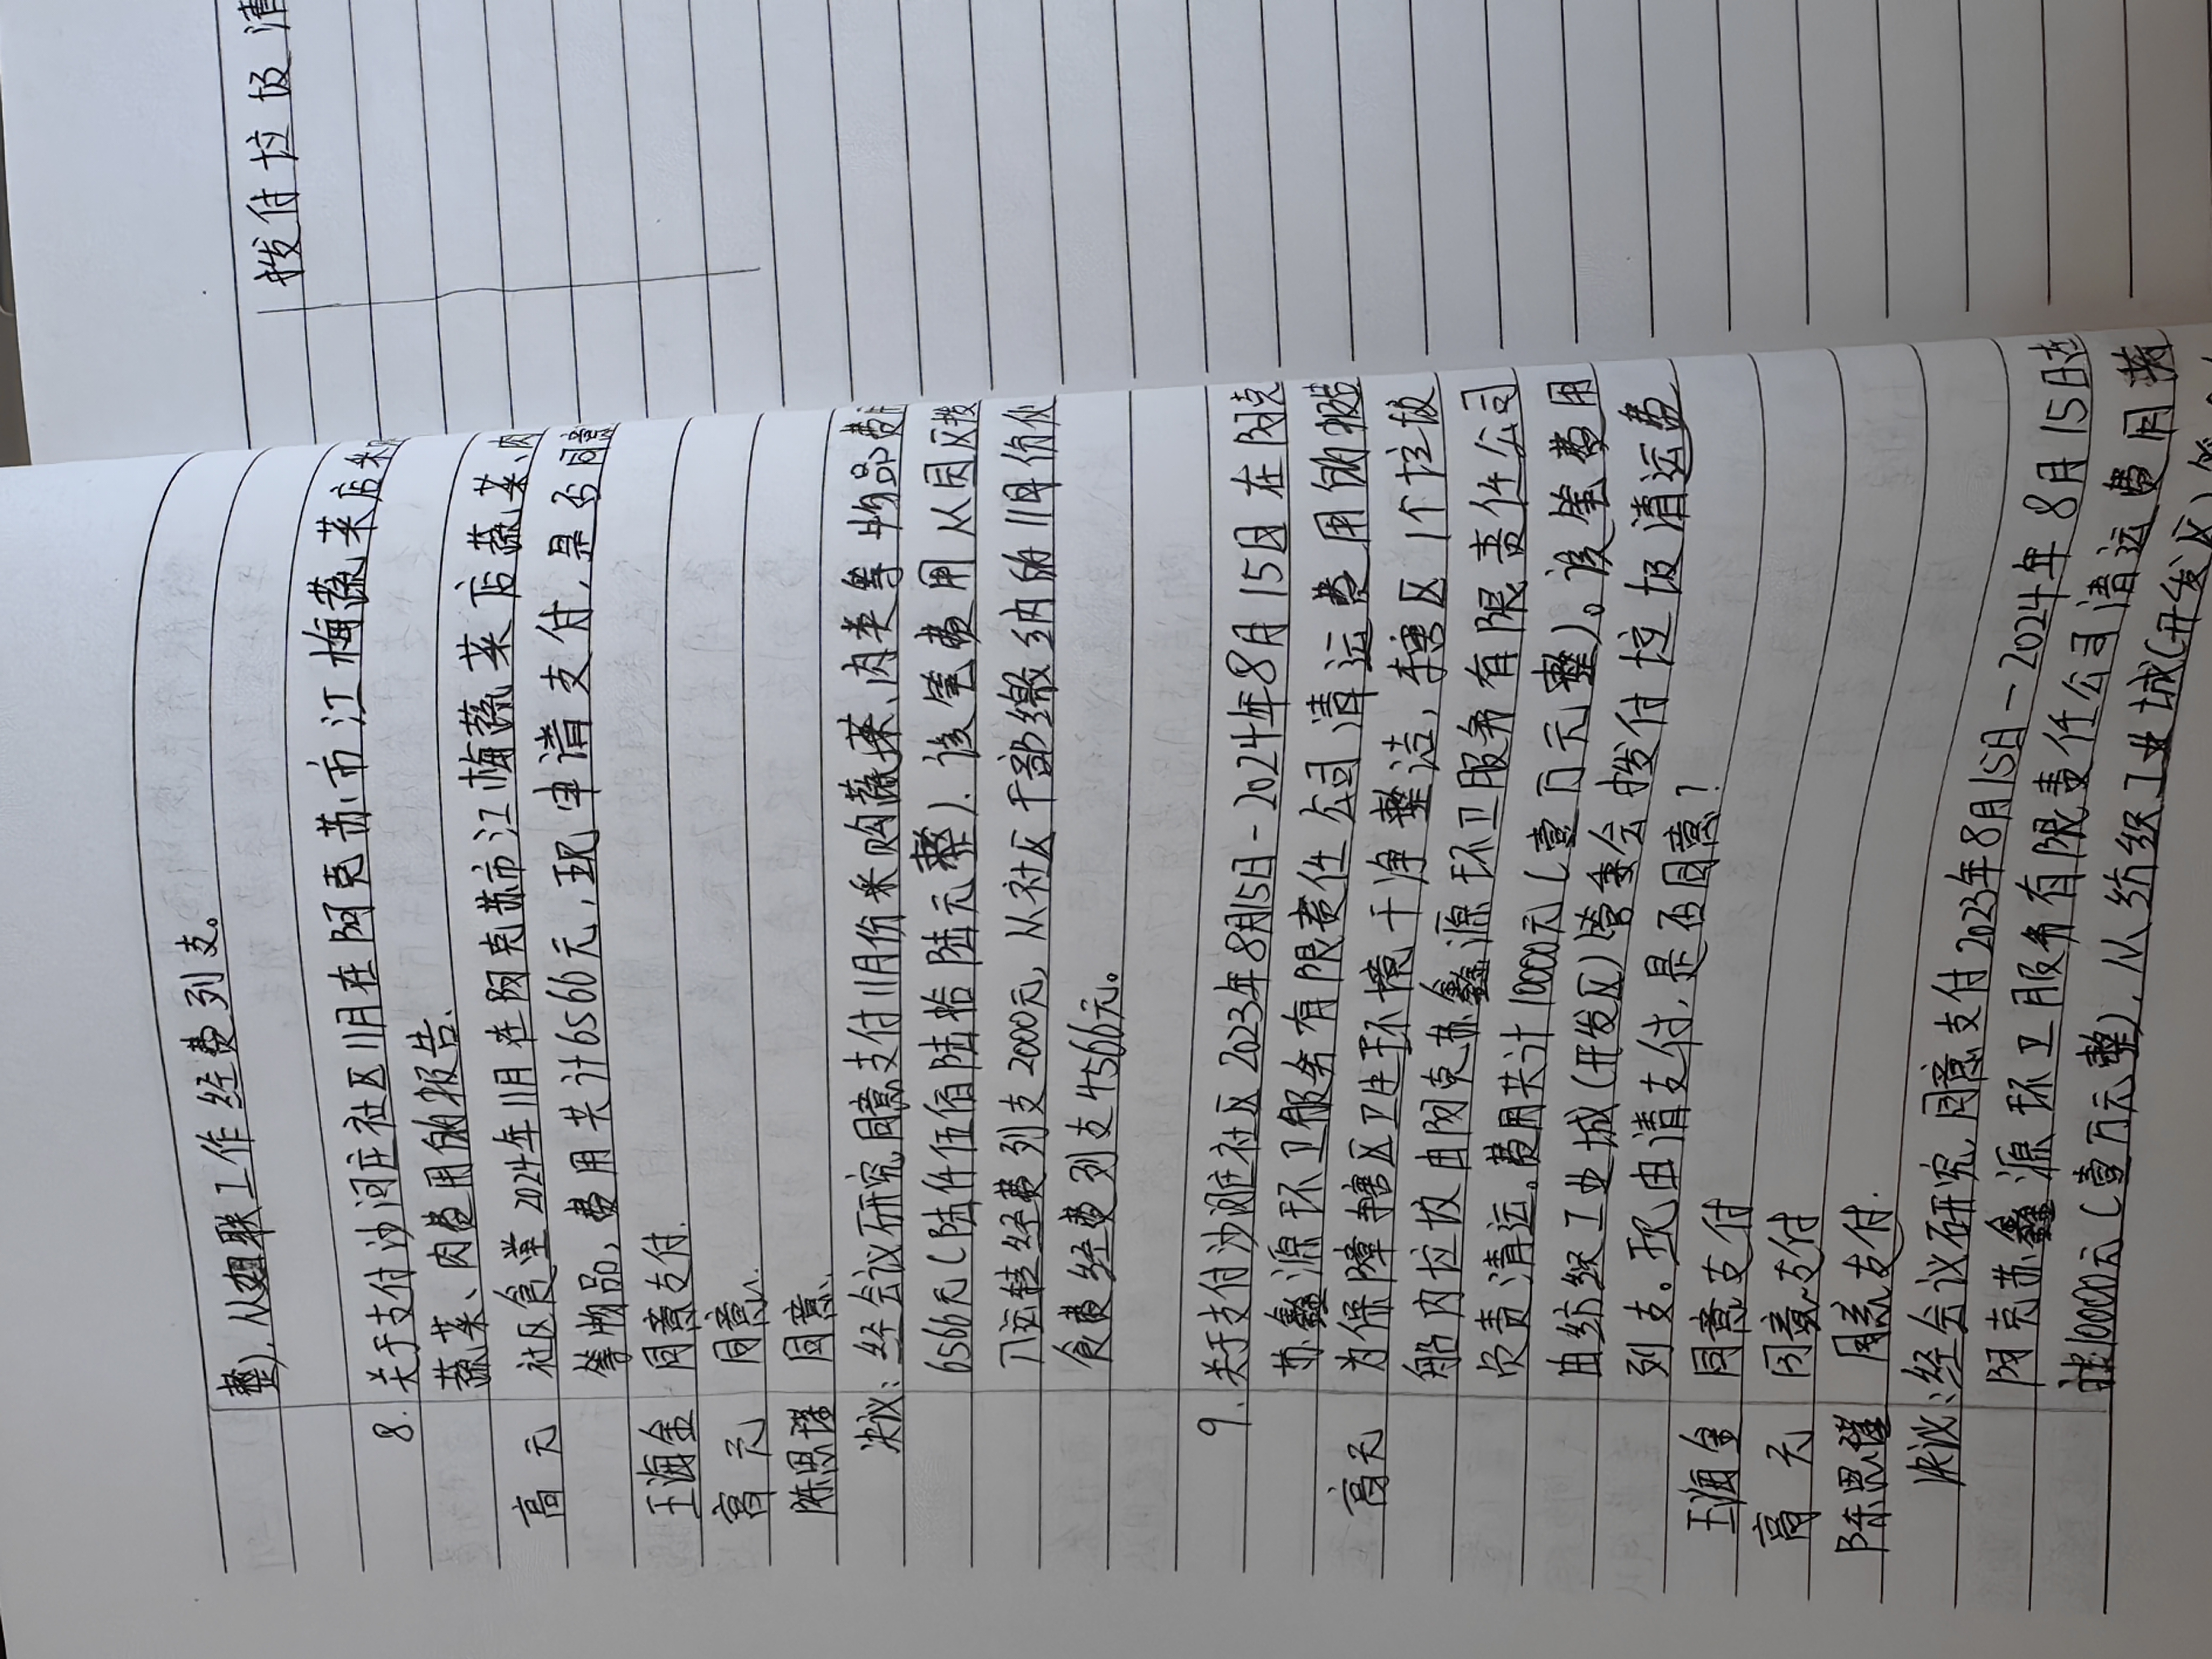 整)，从妇联工作经费列支。
8. 关于支付沙河庄社区11月在阿克苏市江梅蔬菜店采购
蔬菜、肉费用的报告.
高元 社区食堂2024年11月在阿克苏市江梅蔬菜店蔬菜、肉
等物品，费用共计6566元，现申请支付，是否同意
王海金 同意支付.
高元 同意.
陈思瑾 同意.
决议：经会议研究同意支付11月份采购蔬菜、肉类等物品费用
6566元(陆仟伍佰陆拾陆元整)．该笔费用从园区拨
运转经费列支2000元，从社区干部缴纳的11月份伙
食费经费列支4566元。
9. 关于支付沙河庄社区2023年8月15日-2024年8月15日在阿克
苏鑫源环卫服务有限责任公司清运费用的报告
高元 为保障辖区卫生环境干净整洁，辖区1个垃圾
船内垃圾由阿克苏鑫源环卫服务有限责任公司
负责清运。费用共计10000元(壹万元整)。该笔费用
由纺织工业城(开发区)管委会拨付垃圾清运费
列支。现申请支付，是否同意？
王海金 同意支付
高元 同意支付
陈思瑾 同意支付.
决议：经会议研究同意支付2023年8月15日-2024年8月15日在
阿克苏鑫源环卫服务有限责任公司清运费用共
10000元(壹万元整)，从纺织工业城(开发区)管
拨付垃圾清